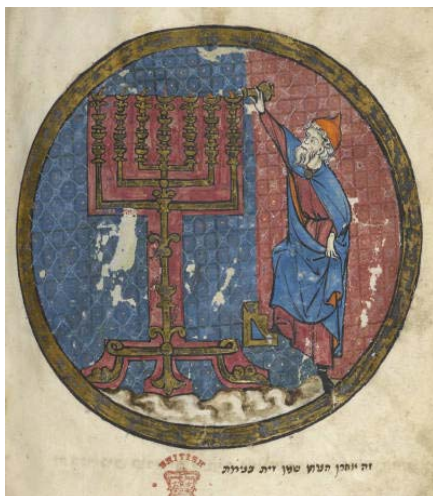 זה אהרן הנותן שמן זית בנירות
BRITISH